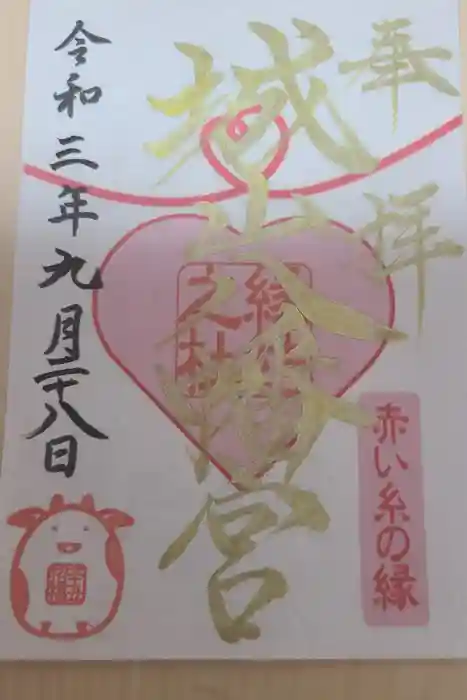 奉拝
城山八幡宮
縁結
之社
赤い糸の縁
令和三年九月二十八日